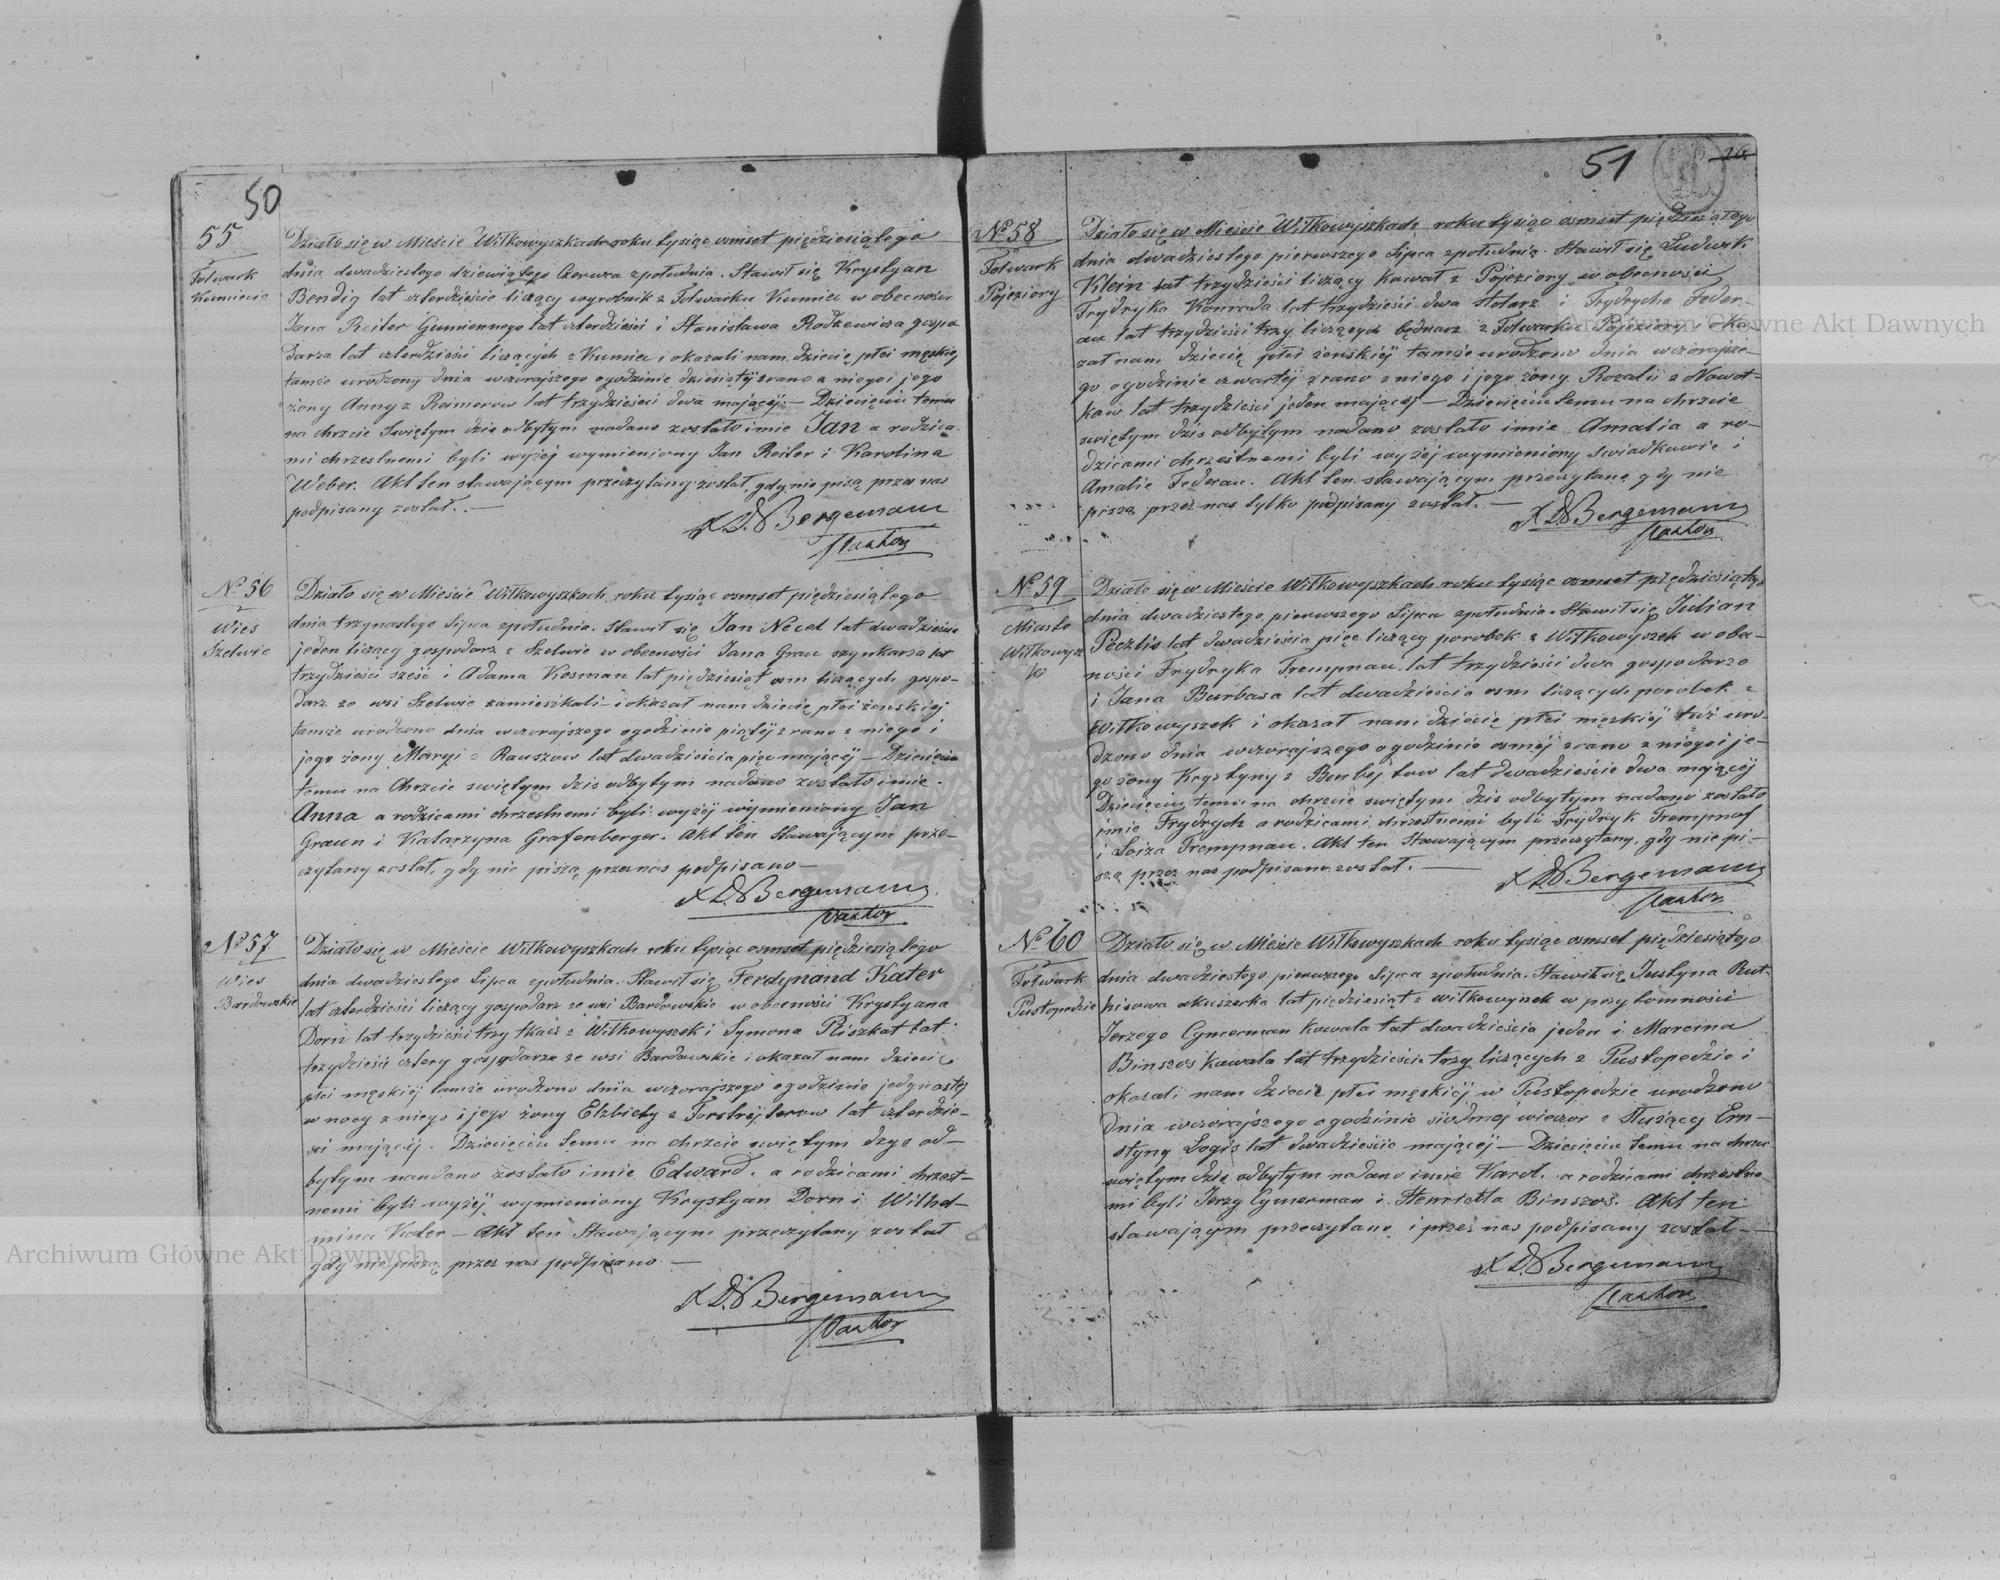 50
55
Folwark
Kumiecie
Działo się w Mieście Wiłkowyszkach roku tysiąc osmset piędziesiątego
dnia dwadziestego dziewiątego Czerwca zpołudnia. Stawił się Krystyan
Bendig lat czterdzieście liczący wyrobnik z Folwarku Kumiec w obecności
Jana Reiter Gumiennego lat czterdzieści i Stanisława Rodzewicza gospo
darza lat czterdzieści liczących z Kumiec i okazali nam dziecię płci męskiej
tamże urodzony dnia wczorajszego ogodzinie dziesiątej zrana z niego i jego
żony Anny z Reimerow lat trzydzieści dwa mającej. — Dziecięciu temu
na chrzcie Swiętym dzis odbytym nadano zostało imie Jan a rodzica
mi chrzestnemi byli wyżej wymieniony Jan Reiter i Karolina
Weber. Akt ten stawającym przeczytany został, gdy nie piszą przez nas
podpisany został. —
X D Bergemann
Pastor
No 56
Wies
Szelwie
Działo się w Mieście Wiłkowyszkach roku tysiąc osmset piędziesiątego
dnia trzynastego Lipca zpołudnia. Stawił się Jan Necel lat dwadzieście
jeden liczący gospodarz z Szelwie w obecności Jana Graun szynkarza lat
trzydzieści sześć i Adama Kosman lat pięćdziesiąt osm liczących gospo-
darz ze wsi Szelwie zamieszkali i okazał nam dziecię płci żenskiej
tamże urodzone dnia wczorajszego ogodzinie piątej zrana z niego i
jego żony Maryi z Rauszow lat dwadzieścia pięć mającej — Dziecięciu
temu na Chrzcie swiętym dzis odbytym nadano zostało imie
Anna a rodzicami chrzestnemi byli wyżej wymieniony Jan
Graun i Katarzyna Grafenberger. Akt ten Stawającym prze-
czytany został, gdy nie piszą przez nas podpisano —
X D Bergemann
Pastor
No 57
Wies
Bardowskie
Działo się w Mieście Wiłkowyszkach roku tysiąc osmset piędziesiątego
dnia dwadziestego Lipca zpołudnia. Stawił się Ferdynand Kater
lat czterdzieści liczący gospodarz ze wsi Bardowskie w obecności Krystyana
Dorn lat trzydzieści trzy tkacz z Wiłkowyszek i Symona Pliszkat lat
trzydzieści cztery gospodarza ze wsi Bardowskie i okazał nam dziecię
płci męskiej tamże urodzono dnia wczorajszego ogodzinie jedynastej
w nocy z niego i jego żony Elzbiety z lat czterdzie-
ści mającej. Dziecięciu temu na chrzcie swiętym dzys od-
bytym nandano zostało imie Edward. a rodzicami chrzest-
nemi byli wyżej wymieniony Krystyan Dorn i Wilhel-
mina Kater — Akt ten Stawającym przeczytany został
gdy nie piszą przez nas podpisano —
X D Bergemann
Pastor
51
No 58
Folwark
Pojeziory
Działo się w Mieście Wiłkowyszkach roku tysiąc osmset piędziesiątego
dnia dwadziestego pierwszego Lipca zpołudnia. Stawił się Ludwik
Klein lat trzydzieści liczący kowal z Pojeziory w obecności
Frydryka Konrada lat trzydzieści dwa stolarz i Frydrycha Feder-
au lat trzydzieści trzy liczących będnarz z Folwarku Pojeziory i oka
zał nam dziecię płci żenskiej tamże urodzono dnia wczorajsze-
go ogodzinie czwartej zrana z niego i jego żony Rozalii z Nowot-
kow lat trzydzieści jeden mającej — Dziecięciu temu na chrzcie
swiętym dzis odbytym nadano zostało imie Amalia a ro-
dzicami chrzestnemi byli wyżej wymieniony Swiadkowie i
Amalie Federau. Akt ten stawającym przeczytano gdy nie
piszą przez nas tylko podpisany został. —
X D Bergemann
Pastor
No 59
Miasto
Wiłkowysz
ki
Działo się w Mieście Wiłkowyszkach roku tysiąc osmset pięździesiątego
dnia dwadziestego pierwszego Lipca zpołudnia. Stawił się Julian
Peczlis lat dwadzieścia pięc liczący porobek z Wiłkowyszek w obe-
ności Frydryka Trempnau lat trzydzieści dwa gospodarza
i Jana Burbasa lat dwadzieścia osm liczących porobek z
Wiłkowyszek i okazał nam dziecię płci męskiej tuż uro-
dzono dnia wczorajszego ogodzinie osmej zrana z niego i je-
go żony Krystyny z lat dwadzieście dwa mającej
Dziecięciu temu na chrzcie swiętym dzis odbytym nadano zostało
imie Frydrych a rodzicami chrzestnemi byli Frydryk Trempnof
i Loiza Trempnau. Akt ten Stawającym przeczytany. gdy nie pi-
szą przez nas podpisano został. —
X D Bergemann
Pastor
No 60
Folwark
Pustopedzie
Działo się w Mieście Wiłkowyszkach roku tysiąc osmset pięździesiątego
dnia dwadziestego pierwszego Lipca zpołudnia. Stawił się Justyna But-
kisowa akuszerka lat pięździesiąt z Wiłkowyszek w przytomności
Jerzego Cymerman kowala lat dwadzieścia jeden i Marcina
Binszos kowala lat trzydzieście trzy liczących z Pustopedzie i
okazali nam dziecie płci męskiej w Pustopedzie urodzono
dnia wczorajszego ogodzinie siedmej wieczor z Służącej Ern-
styny Logis lat dwadzieście mającej — Dziecięciu temu na chrzcie
swiętym dzis odbytym nadano imie Karol. a rodzicami chrzestne-
mi byli Jerzy Cymerman i Henrietta Binszos. Akt ten
stawającym przeczytano i przez nas podpisany został —
X D Bergemann
Pastor
Archiwum Główne Akt Dawnych
Archiwum Główne Akt Dawnych